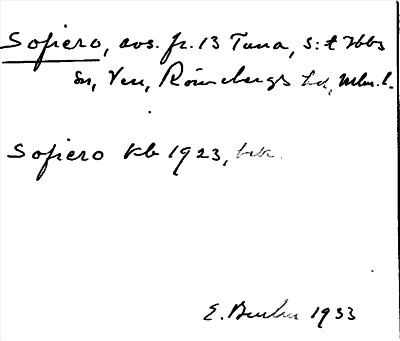 Sofiero, avs. fr. 13 Tuna, S:t Ibbs
sn, Ven, Rönnebergs hd, Mlm. l.
Sofiero Kb 1923,
E. 1933